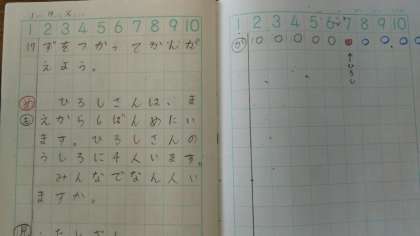 1 2 3 4 5 6 7 8 9 10
17 ずをつかってかんが
えよう。
め ひろしさんは、ま
えから7ばんめにい
ます。ひろしさんの
うしろに4人います。
みんなでなん人い
ますか。
1 2 3 4 5 6 7 8 9 10
ひろし